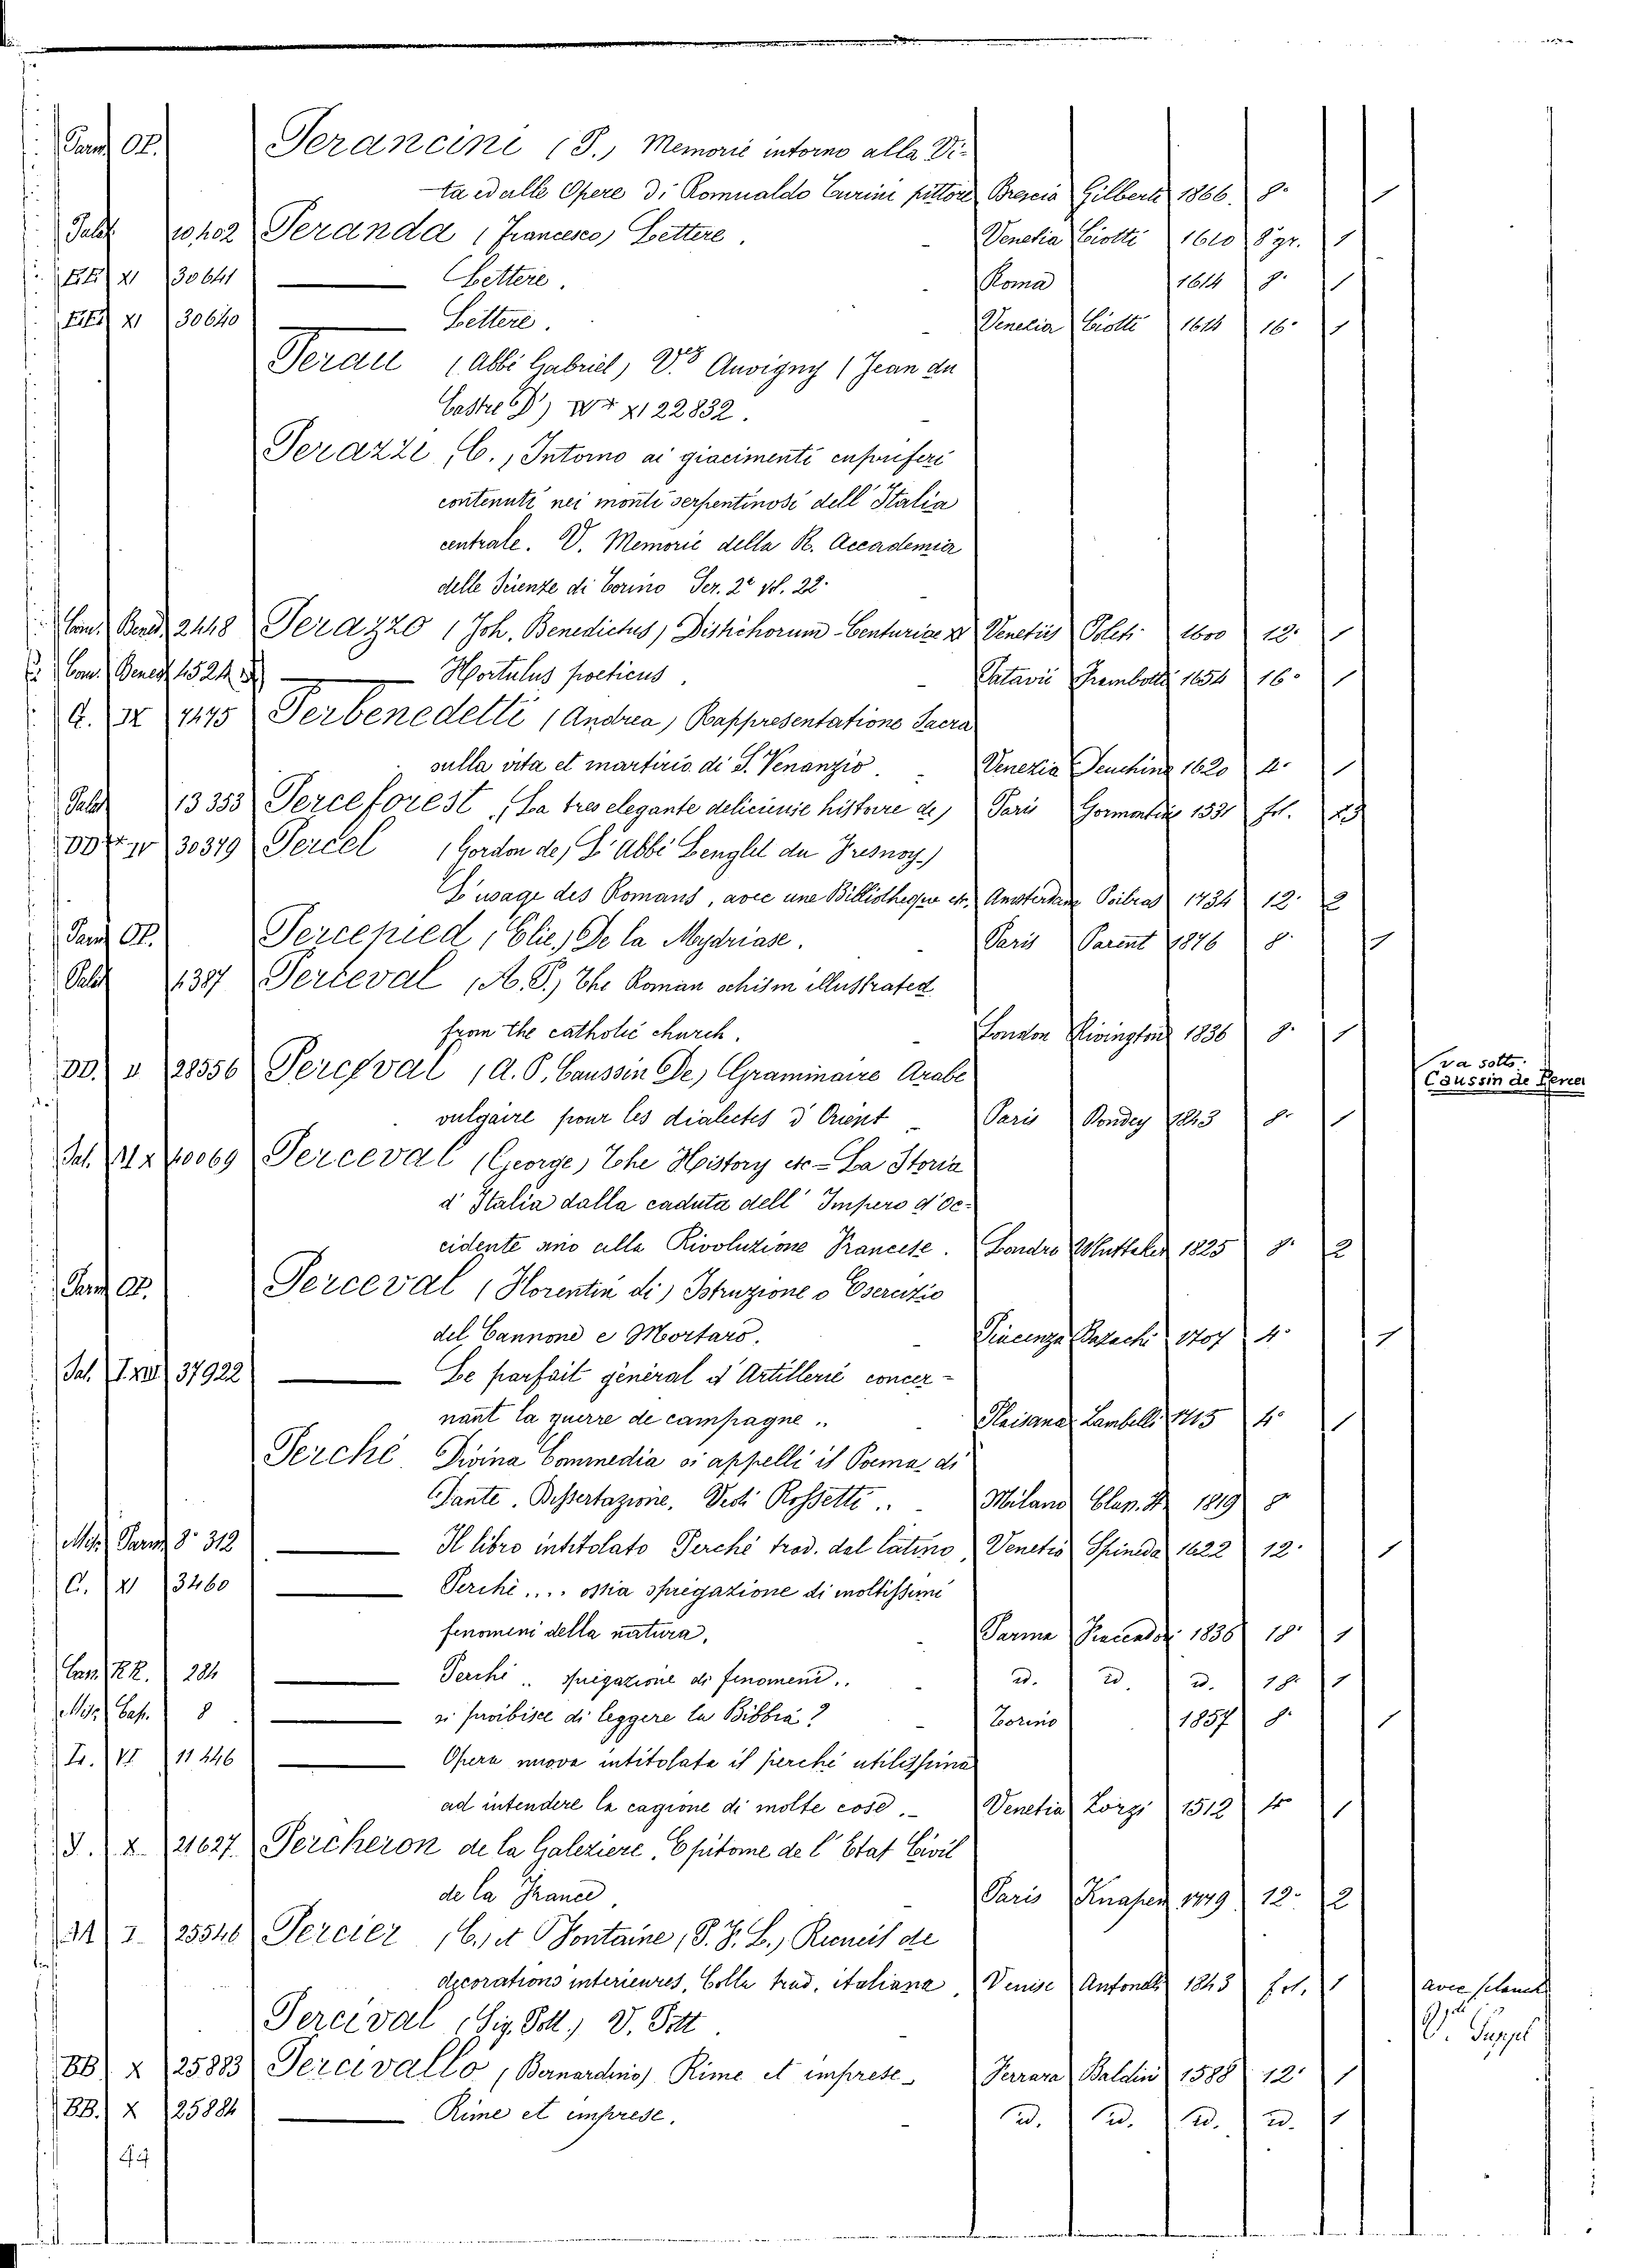 Parm Op. Perancini (P.) Memorie intorno alla Vi-
ta ed alle Opere di Romualdo Turini pittore Brescia Gilberti 1866. 8°
Palat 10402 Peranda (Francesco) Lettere. Venetia Ciotti 1610 8° gr. 1
XI 30641 Lettere. Roma 1614 8° 1
XI 30640 Lettere. Venetia Ciotti 1614 16° 1
Perau (Abbé Gabriel) V. Auvigny (Jean du
Castre D') XI 22832.
Perazzi (C.) Intorno ai giacimenti cupriferi
contenuti nei monti serpentinosi dell' Italia
centrale. V. Memorie della R. Accademia
delle Scienze di Torino Ser. 2ª vol. 22.
Con. Bened. 2448 Perazzo (Joh. Benedictus) Distichorum Centuriae Venetiis Poleti 1600 12° 1
Con. Bened. 1524 Hortulus poeticus. Patavii Frambotti 1654 16° 1
7475 Perbenedetti (Andrea) Rappresentatione Sacra
sulla vita et martirio di S. Venanzio. Venezia Deuchino 1620 4° 1
Palat 13353 Perceforest (La tres elegante delicieuse histoire de) Paris Gormontius 1531 fol.
IV 30379 Percel (Gordon de) L'Abbé Lenglet du Fresnoy)
L'usage des Romans, avec une Billiotheque etc. Amsterdam Poilras 1734 12° 2
Parm Op. Percepied (Elie) De la Mydriase. Paris Parent 1876 8° 1
Palat 1387 Perceval (A. P.) The Roman schism illustrated
from the catholic church. London Rivington 1836 8° 1
DD. V 28556 Perceval (A. P. Caussin De) Graminaire Arabe va sotto: Caussin de
vulgaire pour les dialectes d'Orient Paris Dondey 1843 8° 1
10069 Perceval (George) The History etc - La Storia
d'Italia dalla caduta dell' Impero d'Oc-
cidente sino alla Rivoluzione Francese. Londra Whittaker 1825 8° 2
Parm Op. Perceval (Florentin di) Istruzione o Esercizio
del Cannone e Mortaro. Piacenza Bazachi 1707 4° 1
37922 Le parfait général d'Artillerie concer-
nant la guerre de campagne.. Plaisance Lambelli 1715 4° 1
Perché Divina Commedia si appelli il Poema di
Dante. Dissertazione. Vedi Rossetti.. Milano 1819 8°
Misc. Parm 8° 312 Il libro intitolato Perché trad. dal latino Venetia Spineda 1622 12° 1
C. XI 3460 Perché.... ossia spiegazione di moltissimi
fenomeni della natura. Parma 1836 18° 1
Can. RR. 284 Perché.. spiegazione di fenomeni.. id. id. id. 18° 1
Misc. Cap. 8 si proibisce di leggere la Bibbia? Torino 1857 8° 1
VI 11446 Opera nuova intitolata il perché utilissima
ad intendere la cagione di molte cose. Venetia Zorzi 1512 4° 1
X 21627 Percheron de la Galeziere, Epitome de l'Etat Civil
de la France. Paris Knapen 1779 12° 2
I 25546 Percier (C.) et Fontaine (P. F. L.) Recueil de
decorations interieures, Colla trad. italiana. Venise Antonelli 1843 fol. 1 avec planch
Percival (Sig. Poll.) V. Pott. V. Suppl
BB. X 25883 Percivallo (Bernardino) Rime et imprese Ferrara Baldini 1588 12° 1
BB. X 25884 Rime et imprese. id. id. id. id. 1
44